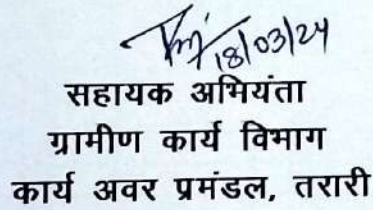 18/03/24
सहायक अभियंता
ग्रामीण कार्य विभाग
कार्य अवर प्रमंडल, तरारी